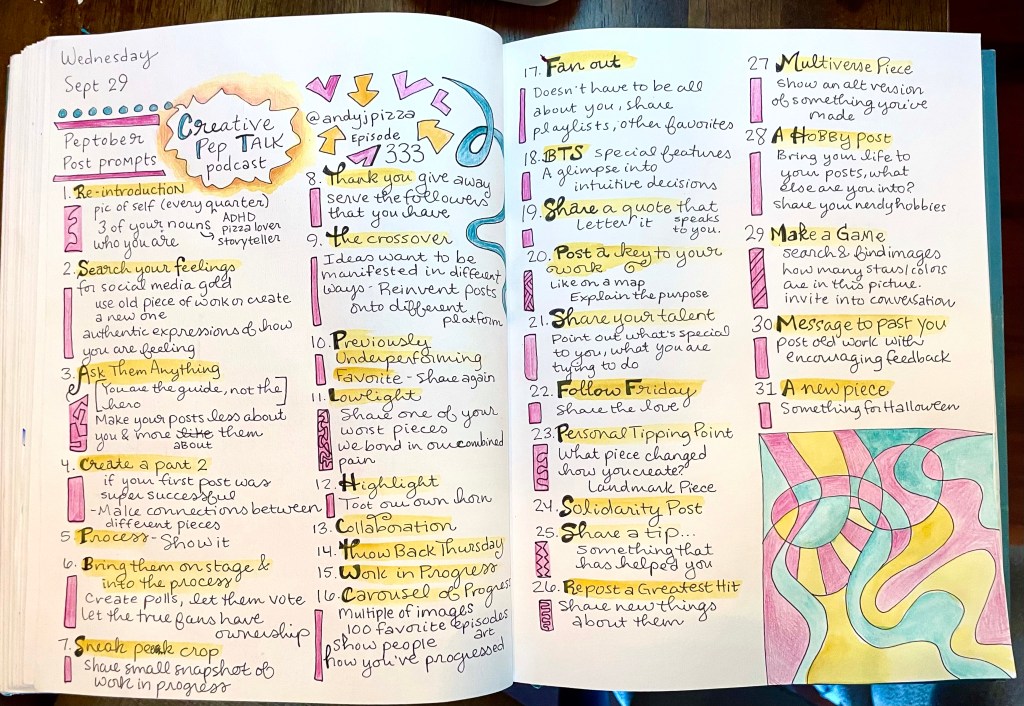 Wednesday
Sept 29
Peptober
Post prompts
Creative
Pep Talk
podcast
@andyjpizza
Episode
333
1. Re-introduction
pic of self (every quarter)
3 of your nouns → ADHD
who you are pizza lover
storyteller
2. Search your feelings
for social media gold
use old piece of work or create
a new one
authentic expressions of how
you are feeling
3. Ask Them Anything
[You are the guide, not the
hero]
Make your posts less about
you & more like them
about
4. Create a part 2
if your first post was
super successful
- Make connections between
different pieces
5. Process - Show it
6. Bring them on stage &
into the process
Create polls, let them vote
Let the true fans have
ownership
7. Sneak peak crop
Share small snapshot of
work in progress
8. Thank you give away
serve the followers
that you have
9. The crossover
Ideas want to be
manifested in different
ways - Reinvent posts
onto different
platform
10. Previously
Underperforming
Favorite - Share again
11. Lowlight
Share one of your
worst pieces
we bond in our combined
pain
12. Highlight
Toot our own horn
13. Collaboration
14. Throw Back Thursday
15. Work in Progress
16. Carousel of Progress
Multiple of images
100 favorite episodes
art
Show people
how you've progressed
17. Fan out
Doesn't have to be all
about you, share
playlists, other favorites
18. BTS special features
A glimpse into
intuitive decisions
19. Share a quote that
Letter it speaks
to you.
20. Post a key to your
work
Like on a map
Explain the purpose
21. Share your talent
Point out what's special
to you, what you are
trying to do
22. Follow Friday
Share the love
23. Personal Tipping Point
What piece changed
how you create?
Landmark Piece
24. Solidarity Post
25. Share a tip...
something that
has helped you
26. Repost a Greatest Hit
Share new things
about them
27 Multiverse Piece
Show an alt version
of something you've
made
28 A Hobby post
Bring your life to
your posts, what
else are you into?
Share your nerdy hobbies
29 Make a Game
search & find images
how many stars/colors
are in this picture.
invite into conversation
30 Message to past you
post old work with
encouraging feedback
31 A new piece
Something for Halloween